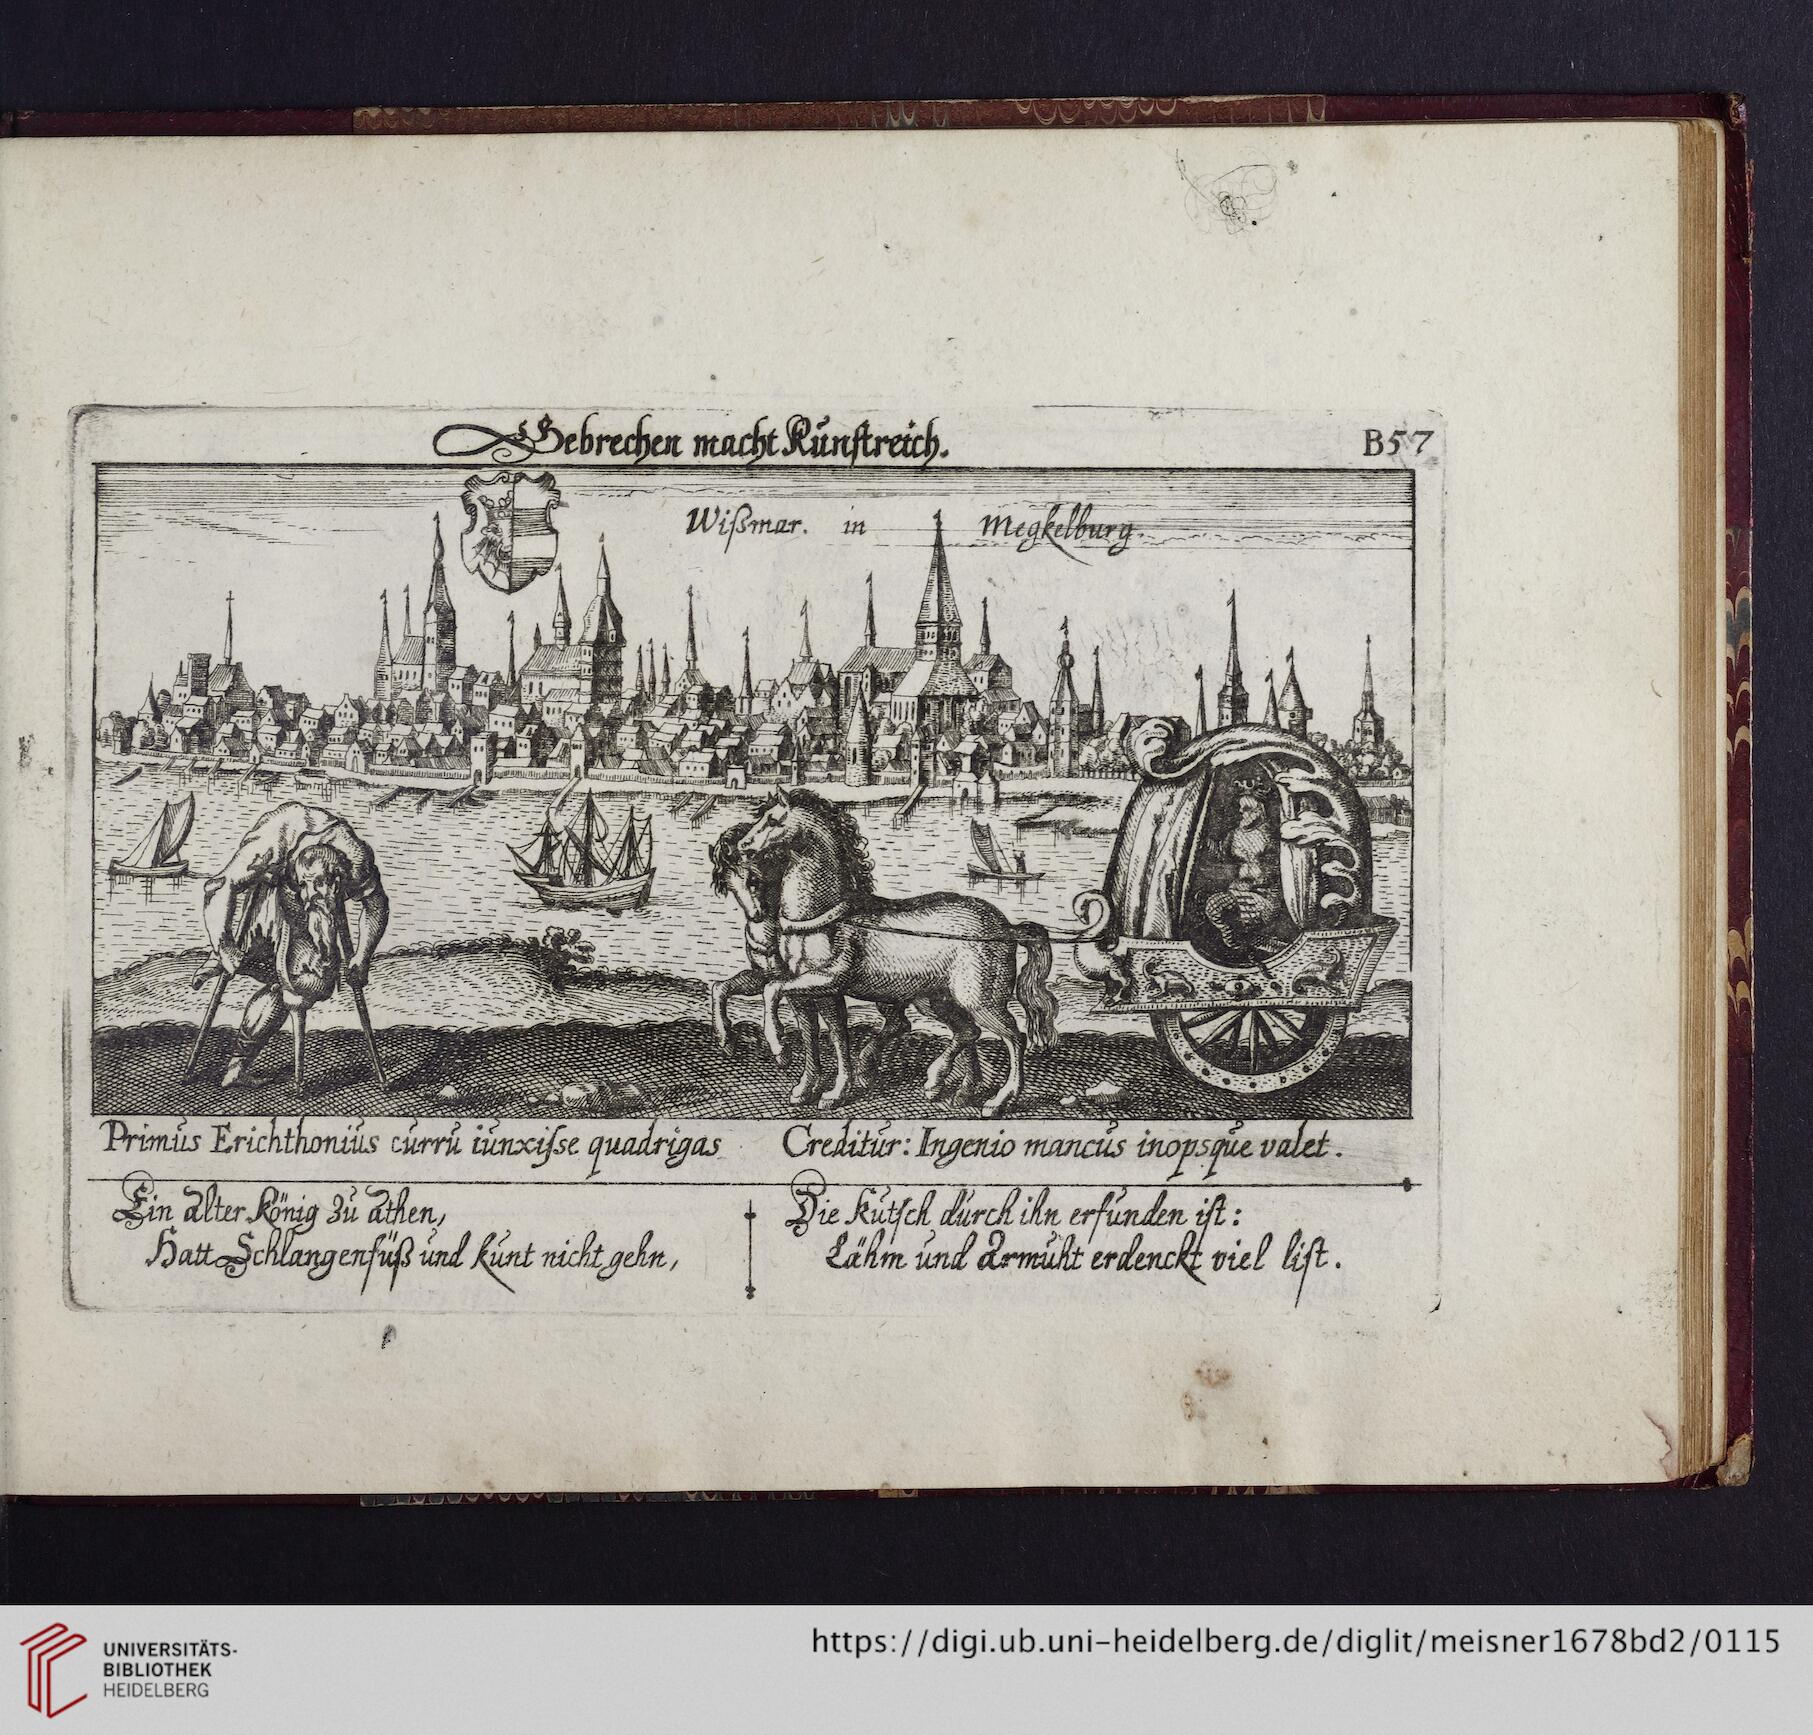 Gebrechen macht Kunstreich.
B57
Wißmar. in Megkelburg.
Primus Erichthonius curru iunxisse quadrigas
Creditur: Ingenio mancus inopsque valet.
Ein alter König zu athen,
Hatt Schlangenfüß und kunt nicht gehn,
Die kutsch durch ihn erfunden ist:
Lähm und armuht erdenckt viel list.
UNIVERSITÄTS-
BIBLIOTHEK
HEIDELBERG
https://digi.ub.uni-heidelberg.de/diglit/meisner1678bd2/0115